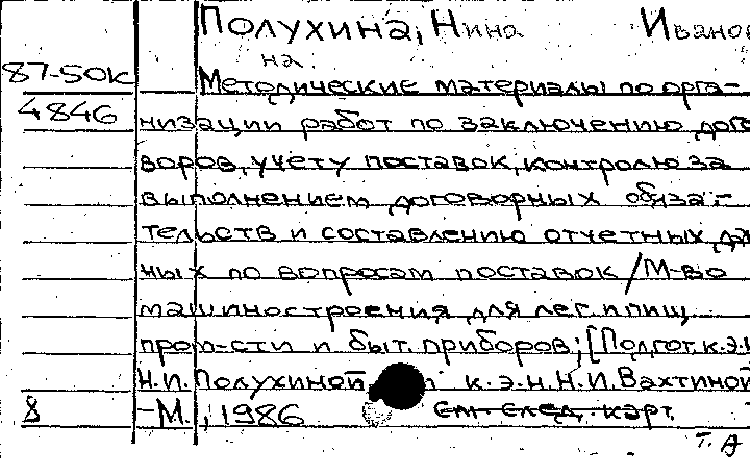 Полухина, Нина Иванов
на.
87-50к Методические материалы по орга-
4846 низации работ по заключению дого
воров, учету поставок, контролю за
выполнением договорных обяза-
тельств и составлению отчетных дан
ных по вопросам поставок / М-во
машиностроения для лег. и пищ.
пром-сти и быт. приборов; [Подгот. к.э.н
Н.И. Полухиной, к.э.н. Н.И. Вахтиной
8 -М., 1986 См. след. карт.
Т. А